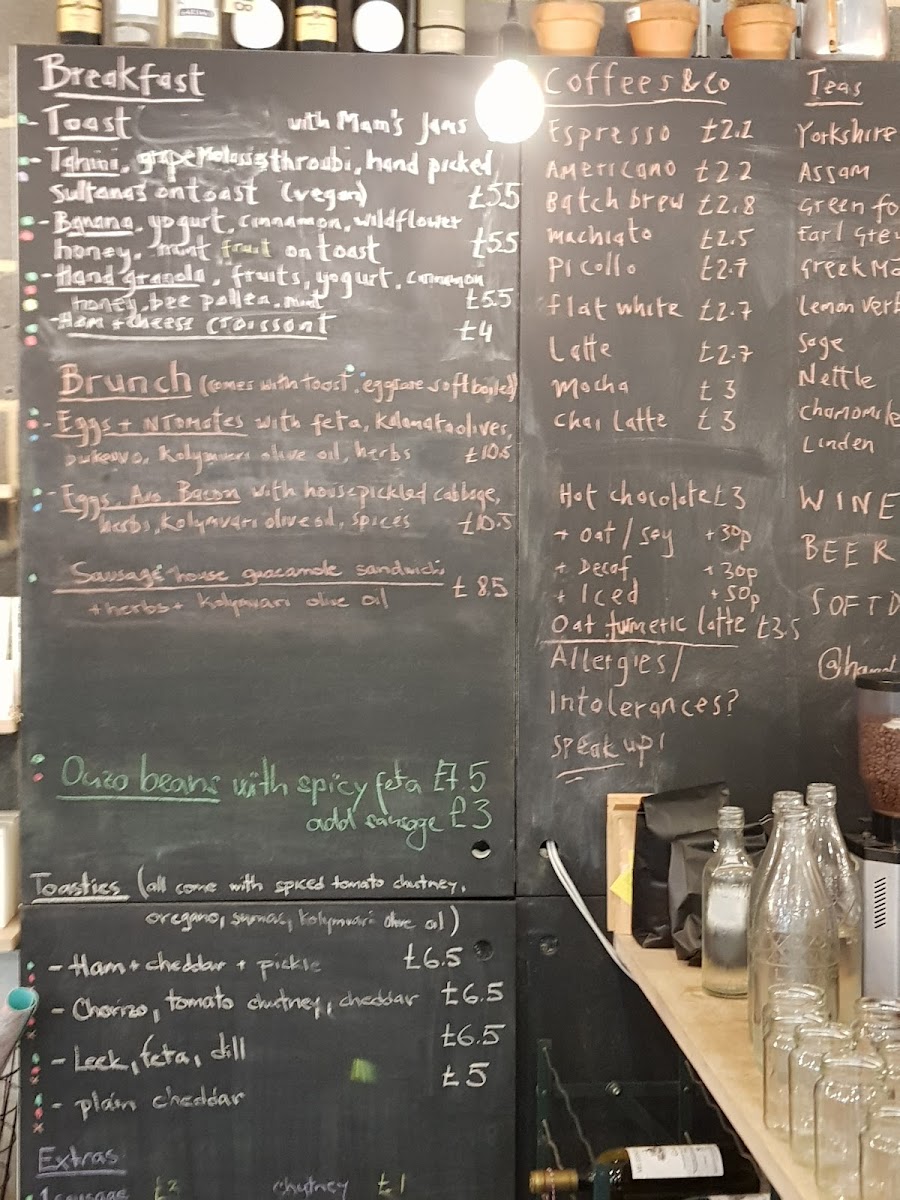 Breakfast
- Toast with Mam's Jams
- Tahini, grape Molasis, throubi, hand picked
sultanas on toast (vegan) £5.5
- Banana, yogurt, cinnamon, wildflower
honey, mint fruit on toast £5.5
- Hand granola, fruits, yogurt, cinnamon
honey, bee pollen, mint £5.5
- Ham + cheese croissant £4
Brunch (comes with toast, eggs are soft boiled)
- Eggs + NTomates with feta, Kalamata olives,
bukovo, Kolymvari olive oil, herbs £10.5
- Eggs, Avo, Bacon with house pickled cabbage,
herbs, Kolymvari olive oil, spices £10.5
Sausage house guacamole sandwich £8.5
+ herbs + Kolymvari olive oil
Ouzo beans with spicy feta £7.5
add sausage £3
Toasties (all come with spiced tomato chutney,
oregano, sumac, Kolymvari olive oil)
- Ham + cheddar + pickle £6.5
- Chorizo, tomato chutney, cheddar £6.5
- Leek, feta, dill £6.5
- plain cheddar £5
Extras
1 sausage £3 chutney £1
Coffees & Co
Espresso £2.2
Americano £2.2
Batch brew £2.8
machiato £2.5
Picollo £2.7
flat white £2.7
Latte £2.7
Mocha £3
Chai latte £3
Hot chocolate £3
+ oat / soy +30p
+ Decaf +30p
+ Iced +50p
Oat tumeric latte £3.5
Allergies /
Intolerances?
speak up!
Teas
Yorkshire
Assam
Green
Earl Grey
Greek
Lemon
Sage
Nettle
Chamomile
Linden
WINE
BEER
SOFT D